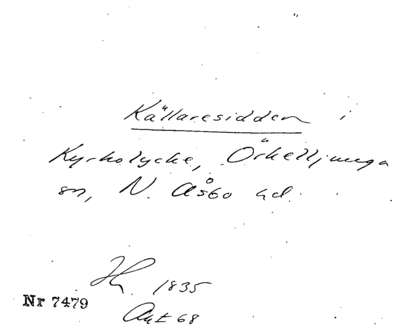 Källaresidden i
Kyrkolycke, Örkelljunga
sn, N. Åsbo hd.
Hr. 1835
Nr 7479
Avt 68